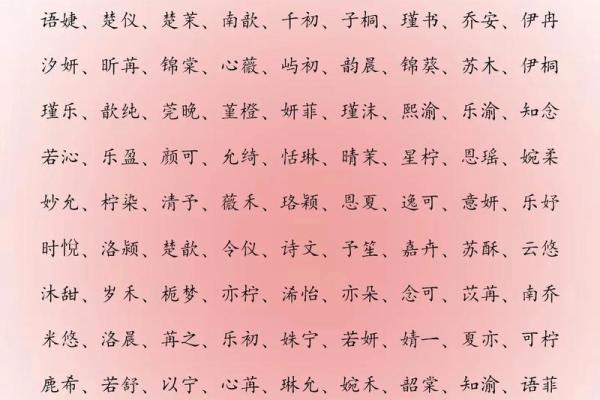 语婕、楚仪、楚茉、南歆、千初、子桐、瑾书、乔安、伊冉
汐妍、昕苒、锦棠、心薇、屿初、韵晨、锦葵、苏木、伊桐
瑾乐、歆纯、莞晚、堇橙、妍菲、瑾沫、熙渝、乐渝、知念
若沁、乐盈、颜可、允绮、恬琳、晴茉、星柠、恩瑶、婉柔
妙允、柠染、清予、薇禾、珞颖、恩夏、逸可、意妍、乐妤
时悦、洛颍、楚歆、令仪、诗文、予笙、嘉卉、苏酥、云悠
沐甜、岁禾、栀梦、亦柠、浠怡、亦朵、念可、苡苒、南乔
米悠、洛晨、苒之、乐初、姝宁、若妍、婧一、夏亦、可柠
鹿希、若舒、以宁、心苒、琳允、婉禾、韶棠、知渝、语菲